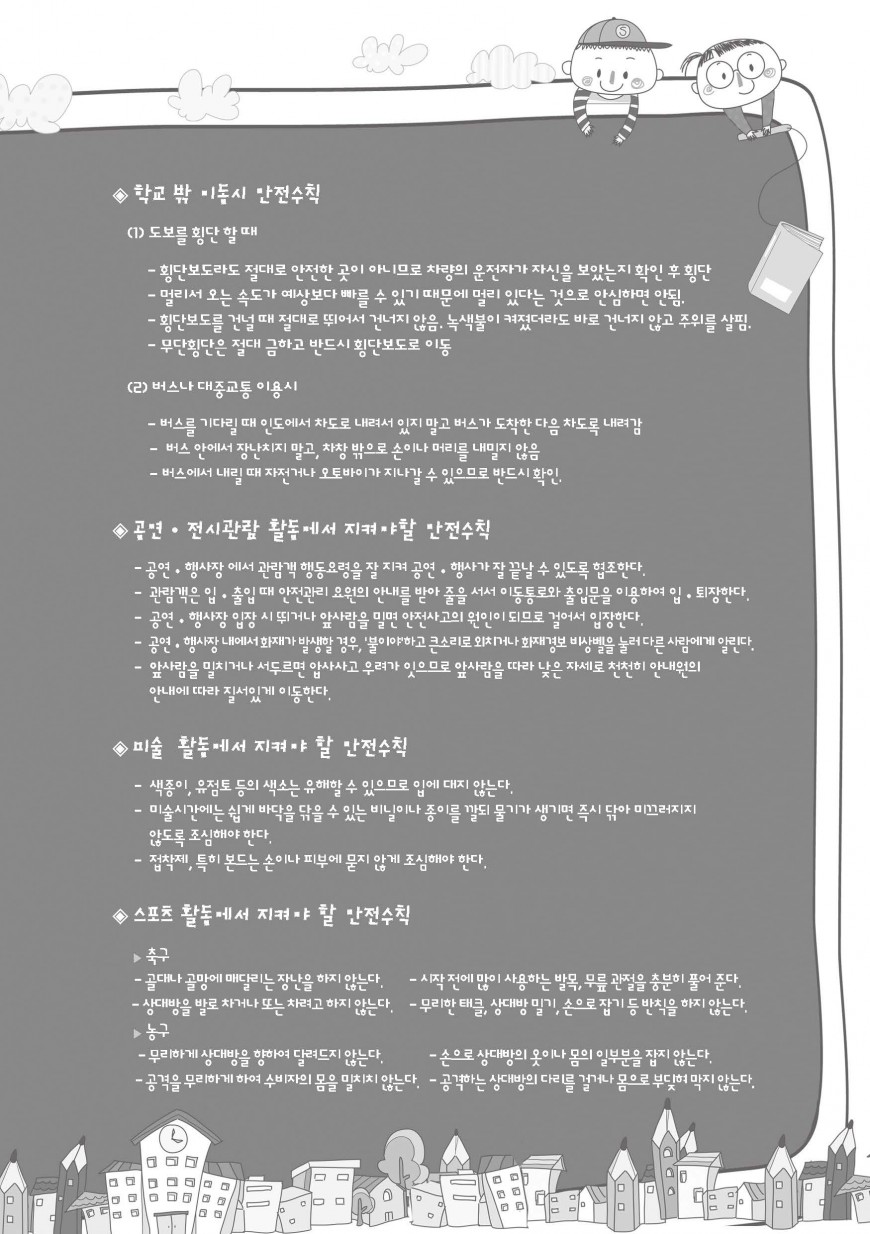 ◈ 학교 밖 이동시 안전수칙
(1) 도보를 횡단 할 때
- 횡단보도라도 절대로 안전한 곳이 아니므로 차량의 운전자가 자신을 보았는지 확인 후 횡단
- 멀리서 오는 속도가 예상보다 빠를 수 있기 때문에 멀리 있다는 것으로 안심하면 안됨.
- 횡단보도를 건널 때 절대로 뛰어서 건너지 않음. 녹색불이 켜졌더라도 바로 건너지 않고 주위를 살핌.
- 무단횡단은 절대 금하고 반드시 횡단보도로 이동
(2) 버스나 대중교통 이용시
- 버스를 기다릴 때 인도에서 차도로 내려서 있지 말고 버스가 도착한 다음 차도록 내려감
- 버스 안에서 장난치지 말고, 차창 밖으로 손이나 머리를 내밀지 않음
- 버스에서 내릴 때 자전거나 오토바이가 지나갈 수 있으므로 반드시 확인.
◈ 공연 • 전시관람 활동에서 지켜야할 안전수칙
- 공연 • 행사장 에서 관람객 행동요령을 잘 지켜 공연 • 행사가 잘 끝날 수 있도록 협조한다.
- 관람객은 입 • 출입 때 안전관리 요원의 안내를 받아 줄을 서서 이동통로와 출입문을 이용하여 입 • 퇴장한다.
- 공연 • 행사장 입장 시 뛰거나 앞사람을 밀면 안전사고의 원인이 되므로 걸어서 입장한다.
- 공연 • 행사장 내에서 화재가 발생할 경우, '불이야'하고 큰소리로 외치거나 화재경보 비상벨을 눌러 다른 사람에게 알린다.
- 앞사람을 밀치거나 서두르면 압사사고 우려가 잇으므로 앞사람을 따라 낮은 자세로 천천히 안내원의
안내에 따라 질서있게 이동한다.
◈ 미술 활동에서 지켜야 할 안전수칙
- 색종이, 유점토 등의 색소는 유해할 수 있으므로 입에 대지 않는다.
- 미술시간에는 쉽게 바닥을 닦을 수 있는 비닐이나 종이를 깔되 물기가 생기면 즉시 닦아 미끄러지지
않도록 조심해야 한다.
- 접착제, 특히 본드는 손이나 피부에 묻지 않게 조심해야 한다.
◈ 스포츠 활동에서 지켜야 할 안전수칙
▷ 축구
- 골대나 골망에 매달리는 장난을 하지 않는다. - 시작 전에 많이 사용하는 발목, 무릎 관절을 충분히 풀어 준다.
- 상대방을 발로 차거나 또는 차려고 하지 않는다. - 무리한 태클, 상대방 밀기, 손으로 잡기 등 반칙을 하지 않는다.
▷ 농구
- 무리하게 상대방을 향하여 달려드지 않는다. - 손으로 상대방의 옷이나 몸의 일부분을 잡지 않는다.
- 공격을 무리하게 하여 수비자의 몸을 밀치치 않는다. - 공격하는 상대방의 다리를 걸거나 몸으로 부딪혀 막지 않는다.